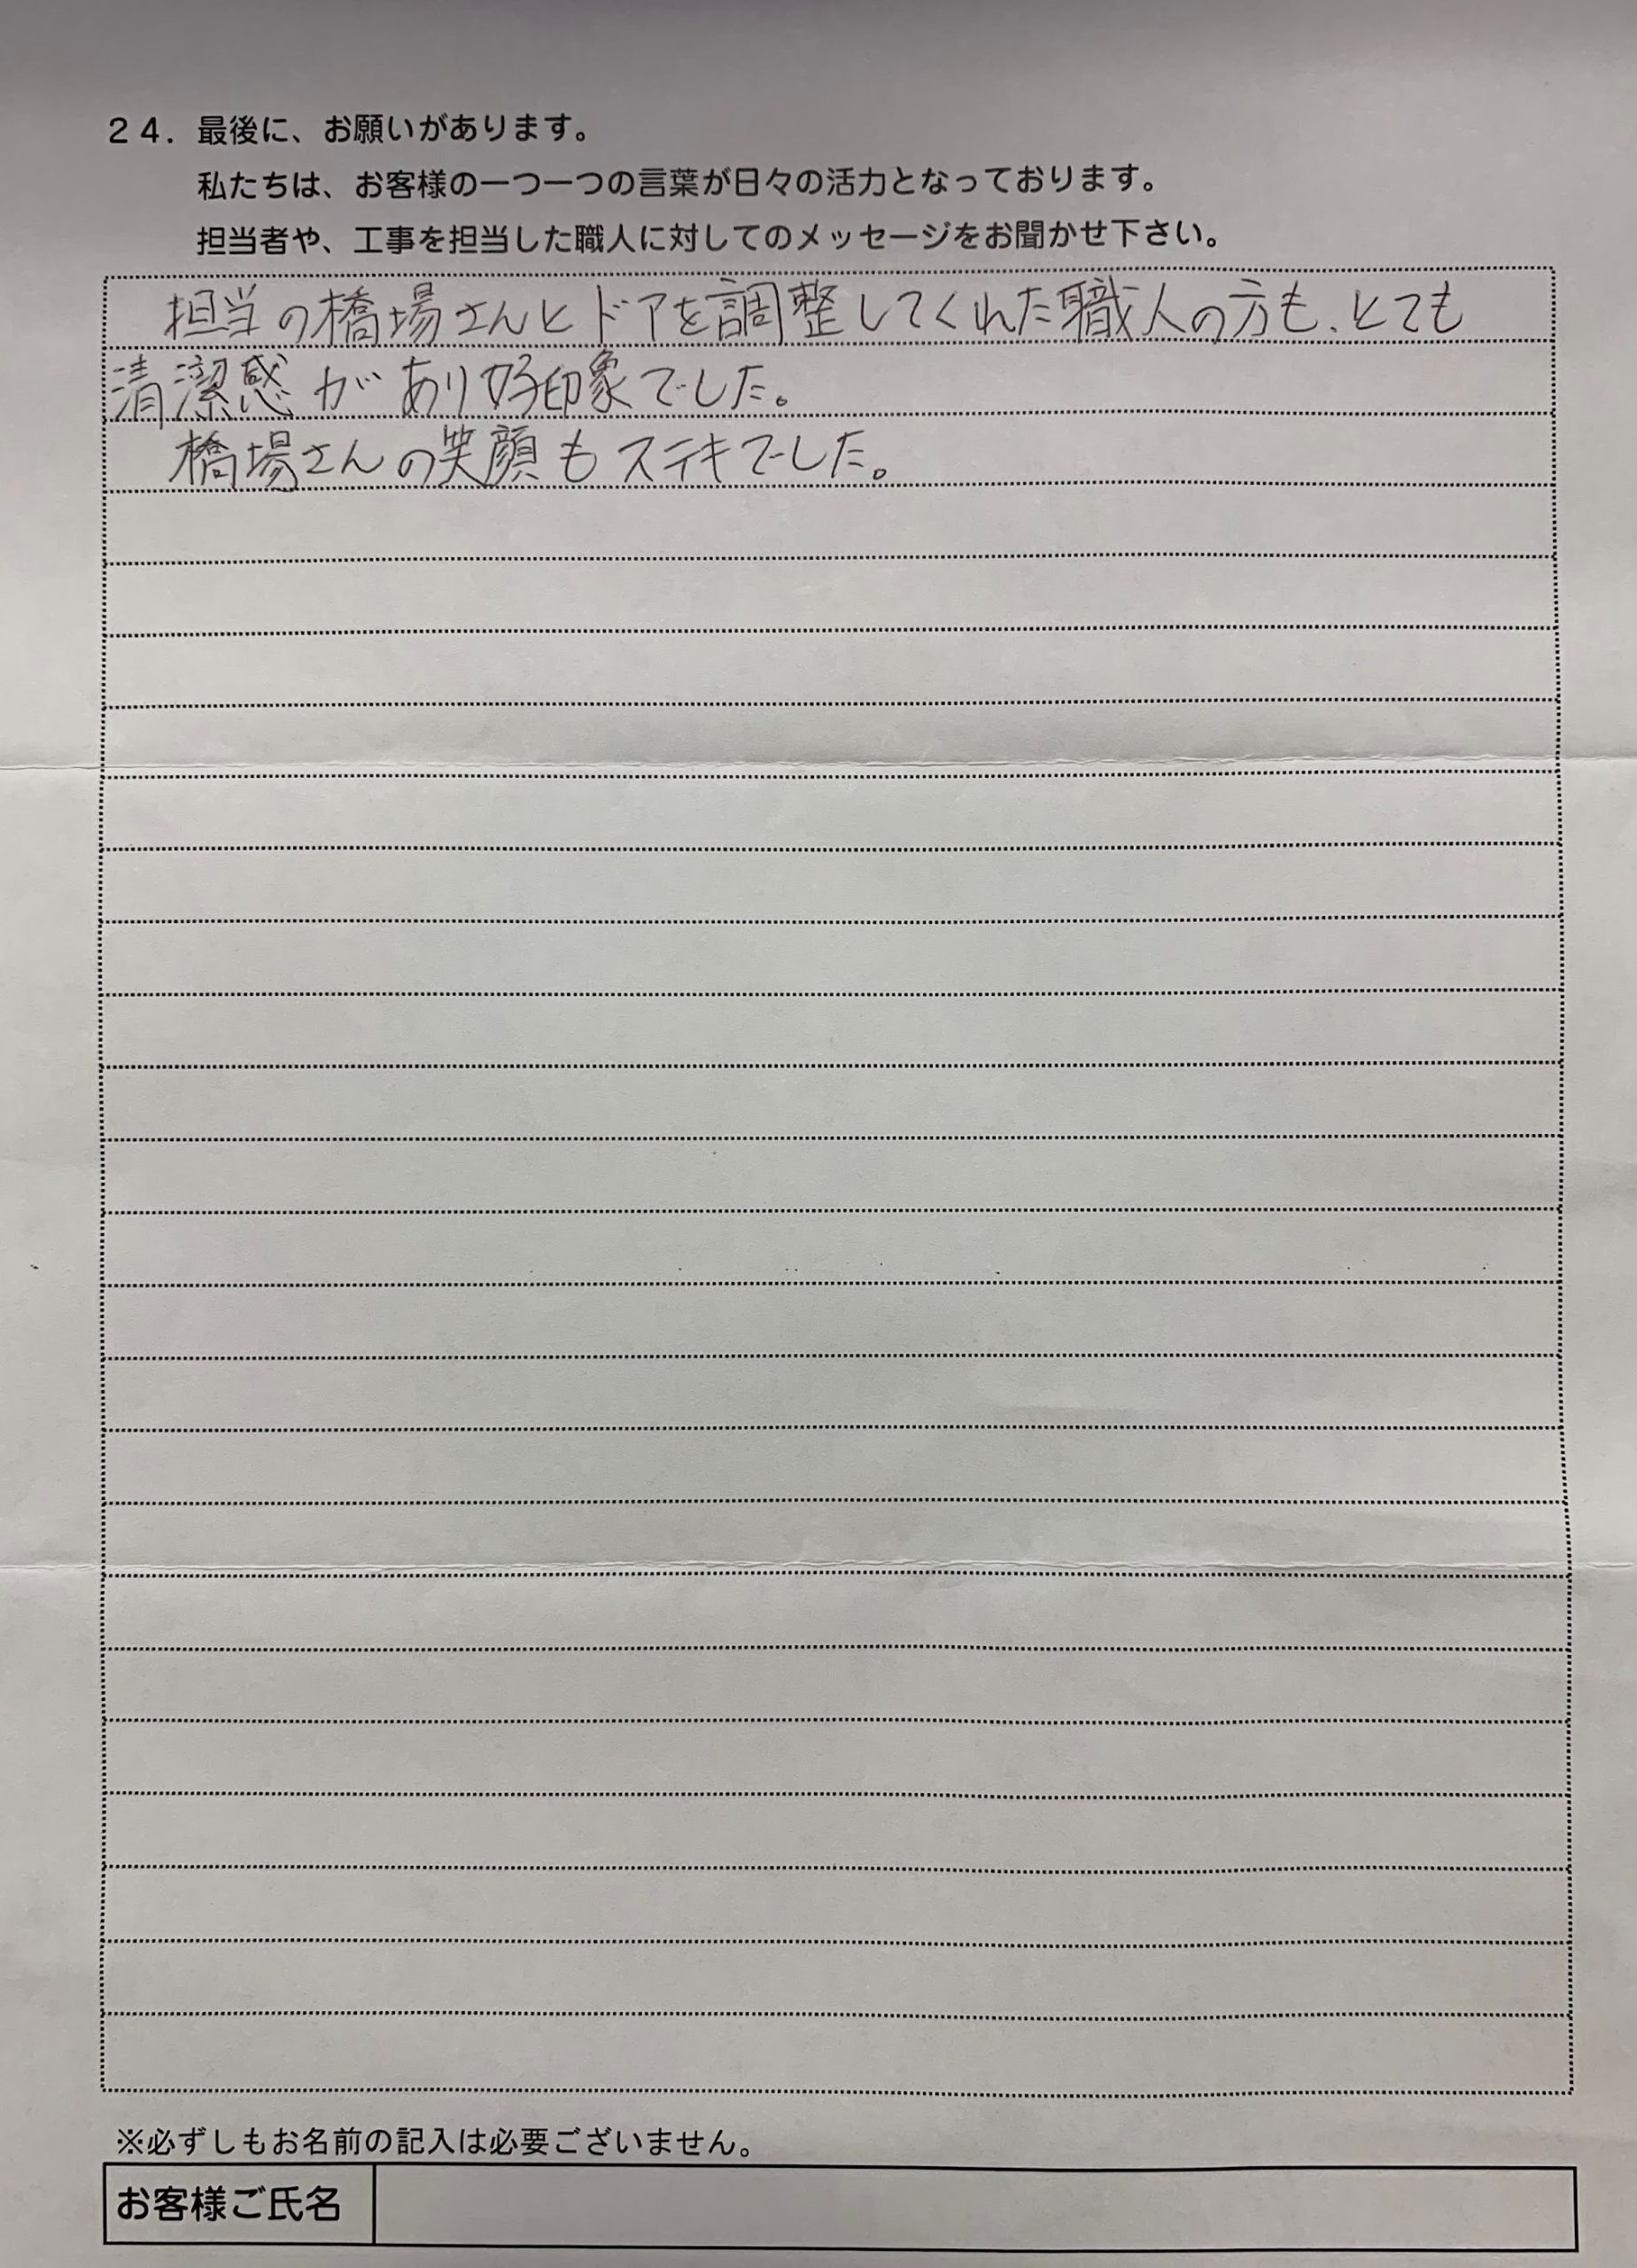 ２４．最後に、お願いがあります。
私たちは、お客様の一つ一つの言葉が日々の活力となっております。
担当者や、工事を担当した職人に対してのメッセージをお聞かせ下さい。
担当の橋場さんとドアを調整してくれた職人の方も、とても
清潔感があり好印象でした。
橋場さんの笑顔もステキでした。
※必ずしもお名前の記入は必要ございません。
お客様ご氏名